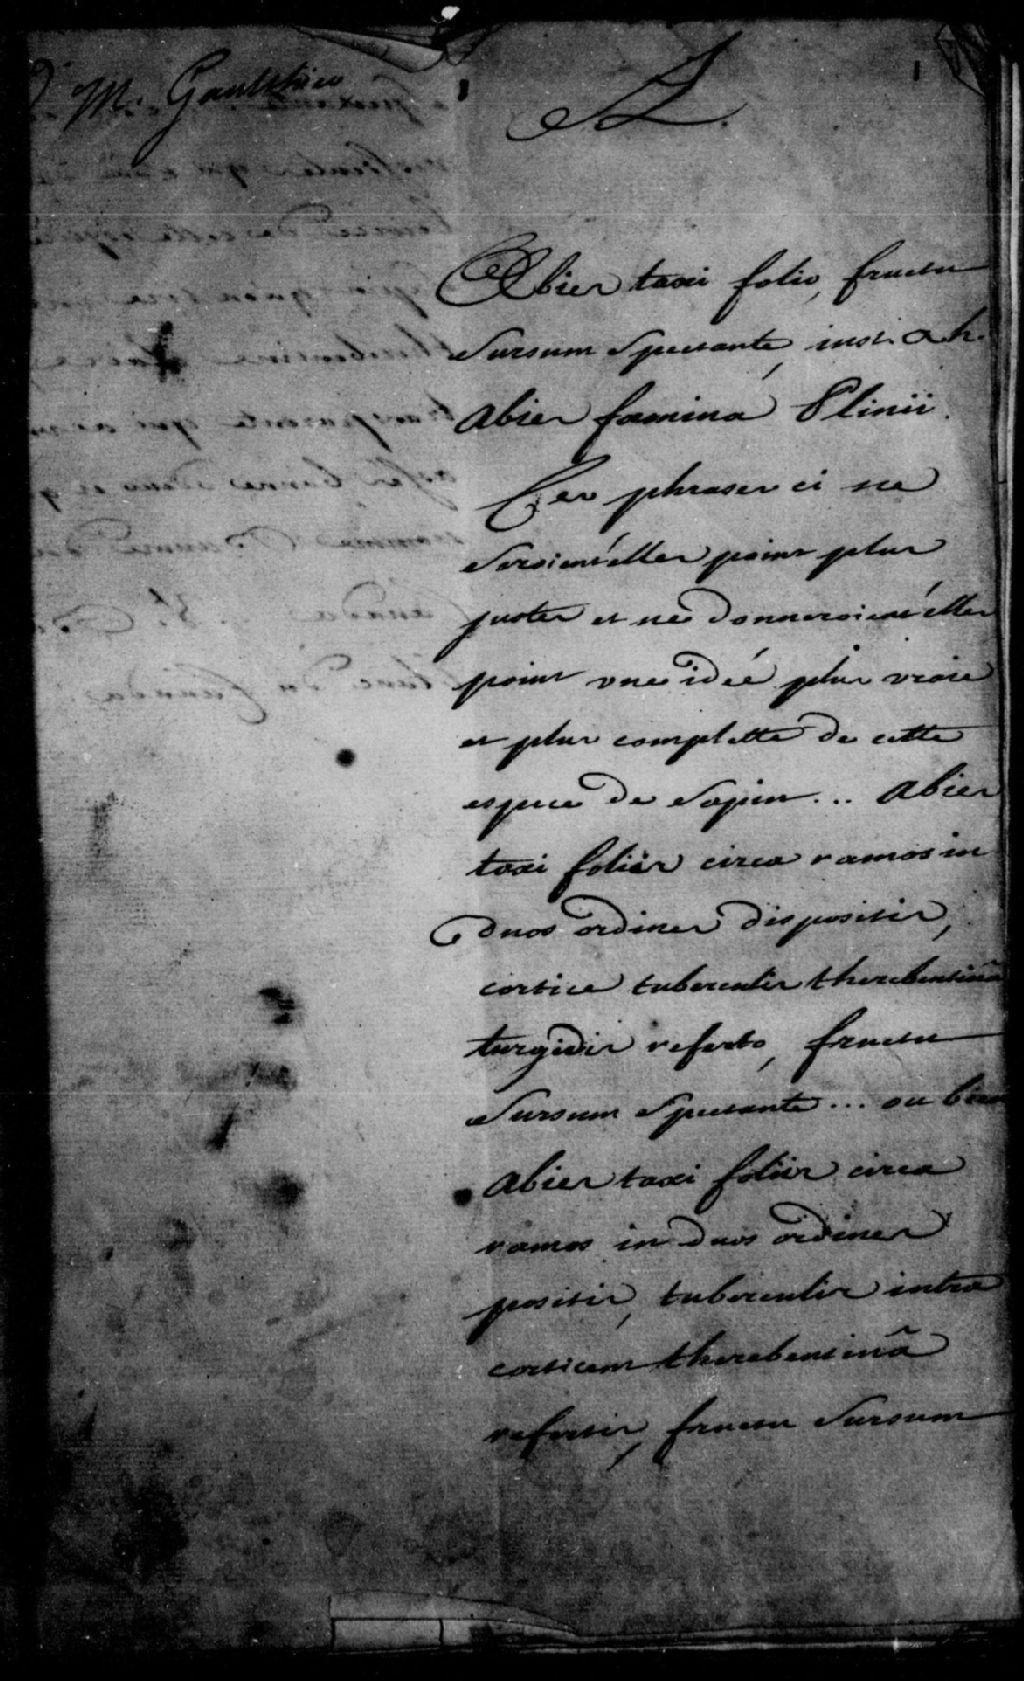 M. Gaulthier
1
A.
Abies taxi folio, fructu
Sursum Spectante, inst. R. h.
abies foemina Plinii.
Ces phrases ci ne
Seroient'elles point plus
justes et ne donneroient'elles
point une idée plus vraie
et plus complette de cette
espece de Sapin... abies
taxi foliis circa ramos in
duos ordines dispositis,
cortice tuberculis therebentinâ
turgidis referto, fructu
Sursum Spectante... ou bien
abies taxi foliis circa
ramos in duos ordines
positis, tuberculis intra
corticem therebentinâ
refertis, fructu Sursum